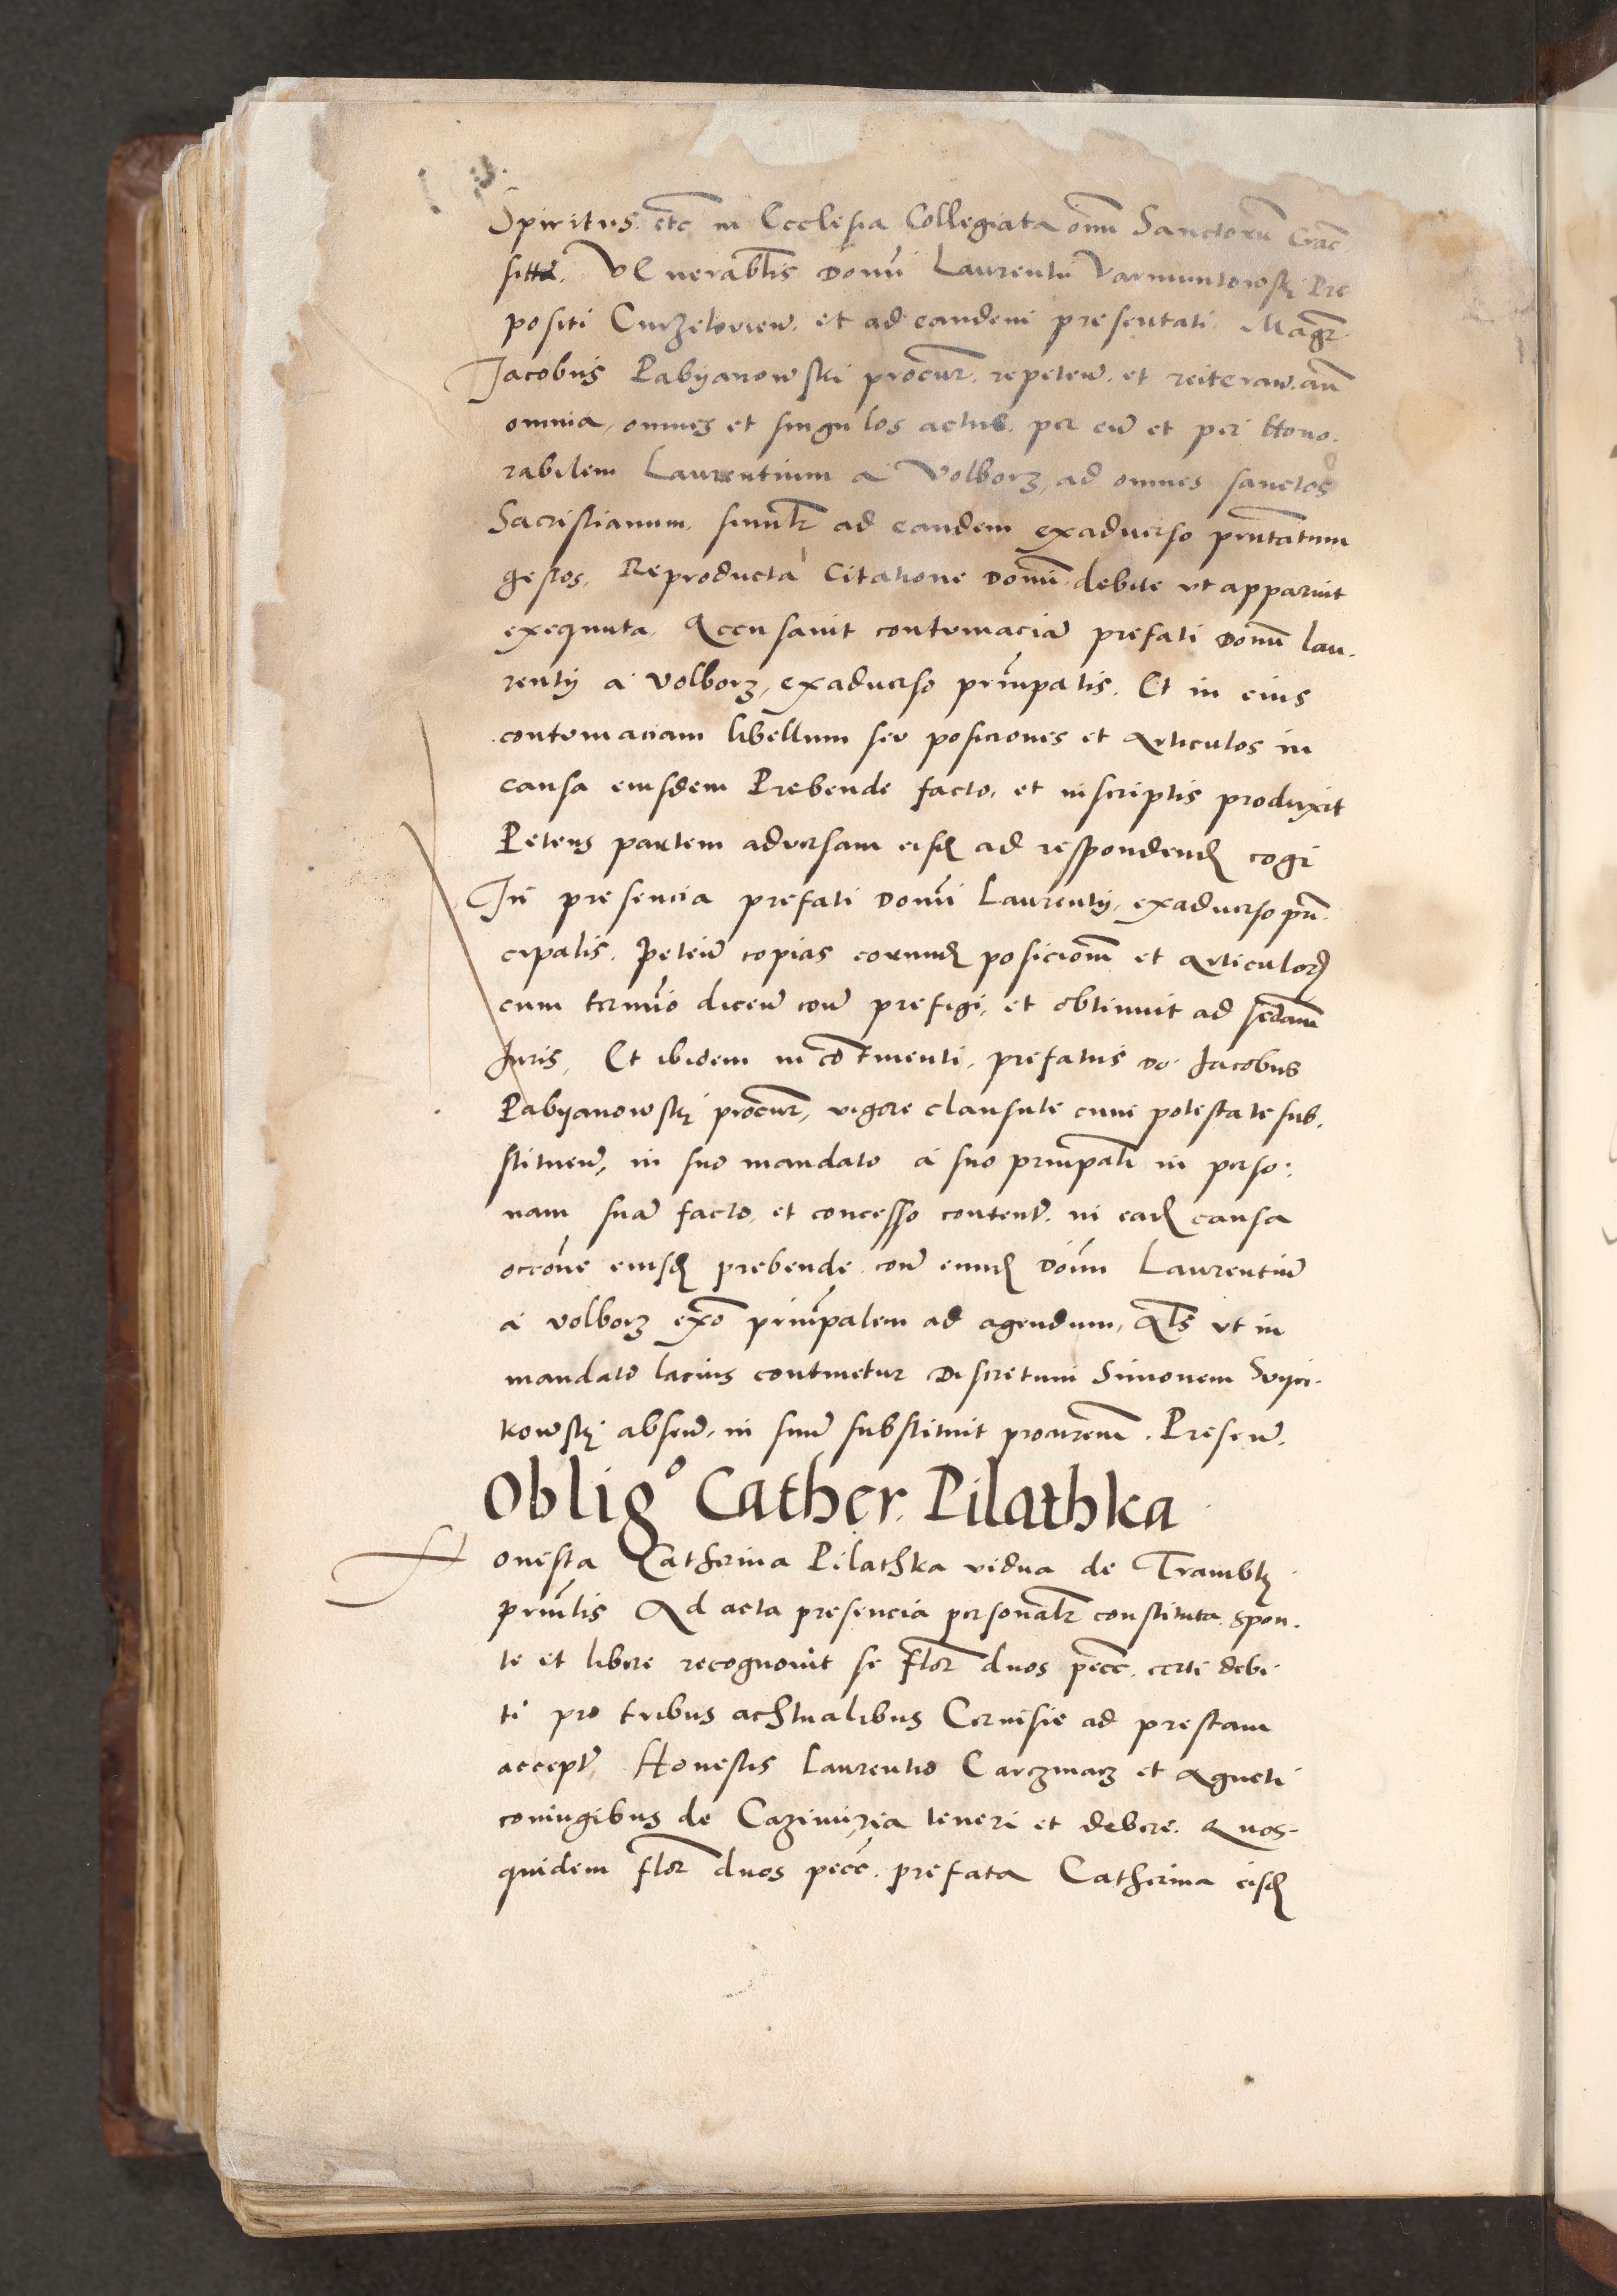 Spiritus etc in Ecclesia Collegiata om̄ Sanctorū Crac̄
sitte. Venerabilis Domi Laurentii Varmuntowski Pre
positi Curzelovien. et ad eandem presentati. Magr̄.
Jacobus Pabyanowski procur. repeten. et reiteran. añ
omnia, omnes et singulos actus. per eū et per Hono.
rabilem Laurentium a Volborz, ad omnes sanctos
Sacristianum. simulr ad eandem exadverso prntatum
gestos, Reproducta Citatione Domi debite ut apparuit
exequuta. Accusavit contumaciā prefati Domi Lau.
rentij a Volborz, exadverso prīncipalis. Et in eius
contumaciam libellum seu posiciones et articulos in
causa eiusdem Prebende facto. et inscriptis produxit
Petens partem adversam eisd ad respondend cogi
In presencia prefati Domi Laurentij, exadverso prī.
cipalis. Peteñ copias eorund posicionū et articulor
cum termīo diceñ coñ prefigi, et obtinuit ad sēdam
Juris, Et ibidem in cōtinenti, prefatus Do. Jacobus
Pabyanowski procur, vigore clausule cum potestate sub.
stitueñ, in suo mandato a suo prīncipali in perso.
nam suā facto, et concesso content. in ead causa
occōne eiusd prebende coñ eund Domī Laurentiū
a Volborz exō prīncipalem ad agendum, Als ut in
mandato lacius continetur Discretum Simonem Svyci.
kowski abseñ, in suū substituit procurem. Preseñ.
Obligo Cather. Pilathka
Honesta Catherina Pilathka vidua de Trambki
prīncipalis Ad acta presencia personalr constituta. spon.
te et libere recognovit se flor duos pecc. certi debi.
ti pro tribus achtualibus Cervisie ad prestam
accept Honestis Laurentio Carczmarz et Agneti
coniugibus de Cazimiria teneri et debere. Quos.
quidem flor duos pecc. prefata Catherina eisd